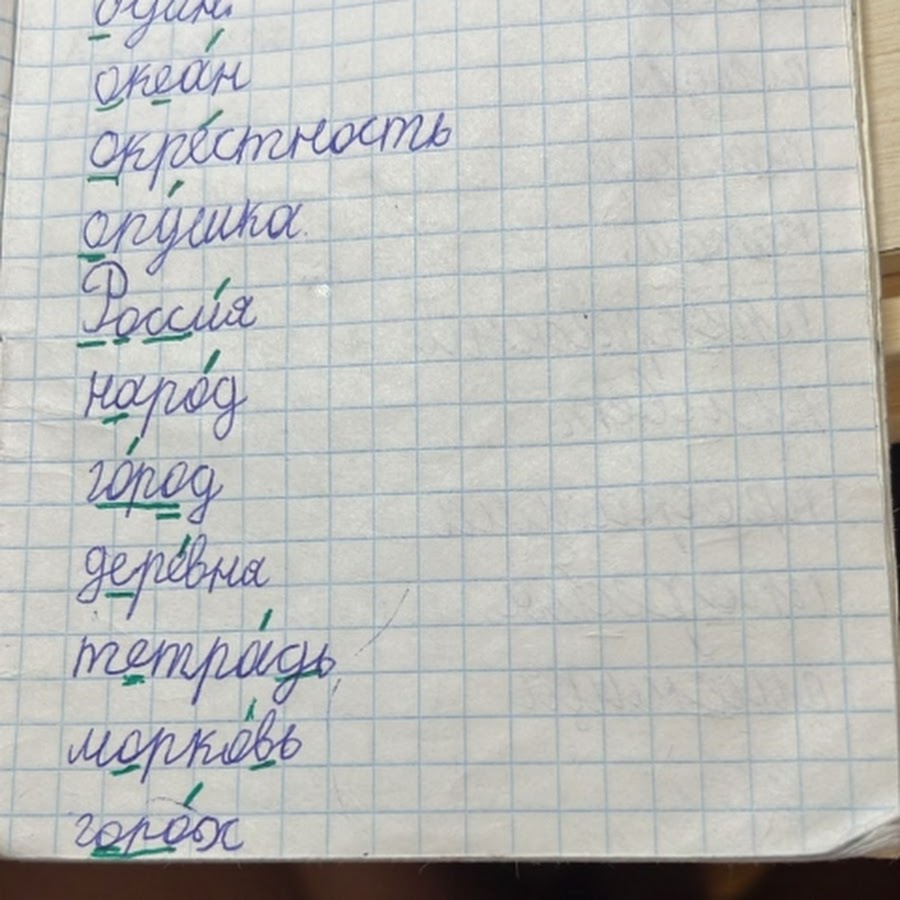 океан
окрестность
опушка
Россия
народ
город
деревня
тетрадь
морковь
горох